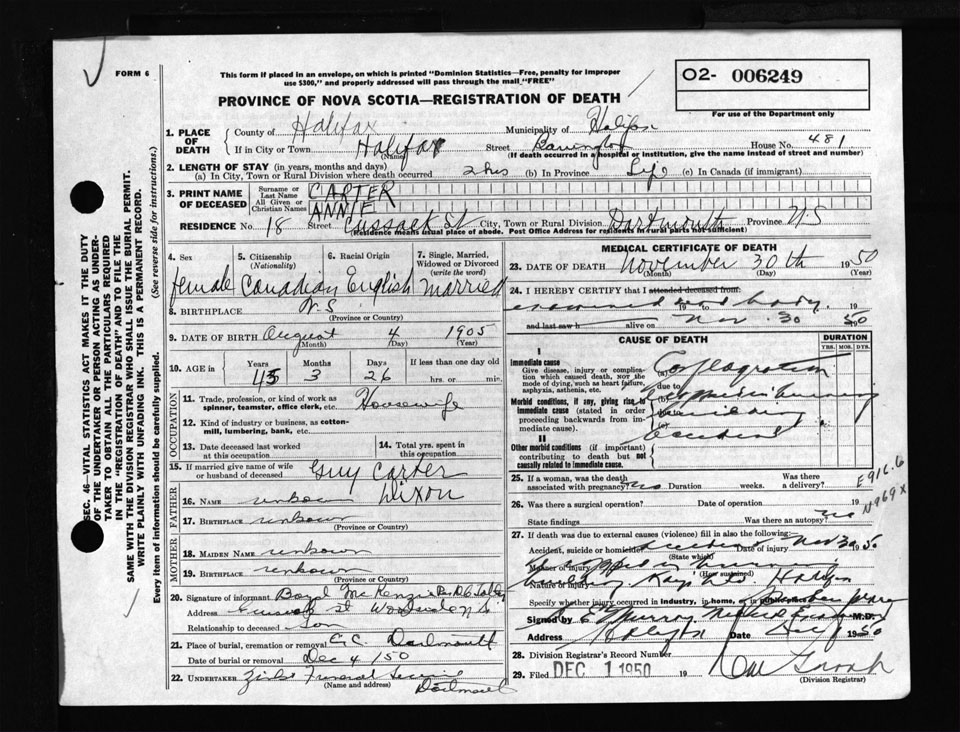 FORM 6
This form if placed in an envelope, on which is printed "Dominion Statistics—Free, penalty for improper
use $300," and properly addressed will pass through the mail "FREE"
O2- 006249
For use of the Department only
PROVINCE OF NOVA SCOTIA—REGISTRATION OF DEATH
1. PLACE OF DEATH
County of Halifax Municipality of Halifax
If in City or Town Halifax (Name) Street Barrington House No. 481
(If death occurred in a hospital or institution, give the name instead of street and number)
2. LENGTH OF STAY (in years, months and days)
(a) In City, Town or Rural Division where death occurred 2 hrs (b) In Province Life (c) In Canada (if immigrant)
3. PRINT NAME OF DECEASED
Surname or Last Name CARTER
All Given or Christian Names ANNIE
RESIDENCE No. 18 Street Cussack St City, Town or Rural Division Dartmouth Province N.S
(Residence means usual place of abode. Post Office Address for residents in rural parts is insufficient)
4. Sex
5. Citizenship (Nationality)
6. Racial Origin
7. Single, Married, Widowed or Divorced (write the word)
female Canadian English Married
8. BIRTHPLACE N.S
(Province or Country)
9. DATE OF BIRTH August 4 1905
(Month) (Day) (Year)
10. AGE in Years Months Days If less than one day old
45 3 26 hrs. or min.
OCCUPATION
11. Trade, profession, or kind of work as spinner, teamster, office clerk, etc. Housewife
12. Kind of industry or business, as cotton-mill, lumbering, bank, etc.
13. Date deceased last worked at this occupation
14. Total yrs. spent in this occupation
15. If married give name of wife or husband of deceased Guy Carter
FATHER
Dixon
16. Name unknow
17. Birthplace unknown
(Province or Country)
MOTHER
18. Maiden Name unknown
19. Birthplace unknown
(Province or Country)
20. Signature of informant Boyd McKenzie
Address St
Relationship to deceased Son
21. Place of burial, cremation or removal Dartmouth
Date of burial or removal Dec 4/50
22. UNDERTAKER Funeral Dartmouth
(Name and address)
MEDICAL CERTIFICATE OF DEATH
23. DATE OF DEATH November 30th 1950
(Month) (Day) (Year)
24. I HEREBY CERTIFY that I attended deceased from:
examined body 19
and last saw h alive on Nov. 30 1950
CAUSE OF DEATH
DURATION
YRS. MOS. DYS.
I
Immediate cause
Give disease, injury or complication which caused death, not the mode of dying, such as heart failure, asphyxia, asthenia, etc.
(a) Conflagration
due to
Morbid conditions, if any, giving rise to immediate cause (stated in order proceeding backwards from immediate cause).
burning
building
II
Other morbid conditions (if important) contributing to death but not causally related to immediate cause.
Accident
25. If a woman, was the death associated with pregnancy? no Duration weeks. Was there a delivery?
E916.6
N969X
26. Was there a surgical operation? Date of operation 19
State findings Was there an autopsy? no
27. If death was due to external causes (violence) fill in also the following:
Accident, suicide or homicide? accident Date of injury Nov 30 50
(State which)
Manner of injury burning
(How sustained)
Nature of injury building Halifax
Specify whether injury occurred in industry, in home, or in public place
Signed by E Murray M.D.
Address Halifax Date Dec 1 1950
28. Division Registrar's Record Number
29. Filed DEC 1 1950 19
(Division Registrar)
SEC. 46—VITAL STATISTICS ACT MAKES IT THE DUTY
OF THE UNDERTAKER OR PERSON ACTING AS UNDER-
TAKER TO OBTAIN ALL THE PARTICULARS REQUIRED
IN THE "REGISTRATION OF DEATH" AND TO FILE THE
SAME WITH THE DIVISION REGISTRAR WHO SHALL ISSUE THE BURIAL PERMIT.
WRITE PLAINLY WITH UNFADING INK. THIS IS A PERMANENT RECORD.
Every item of information should be carefully supplied. (See reverse side for instructions.)